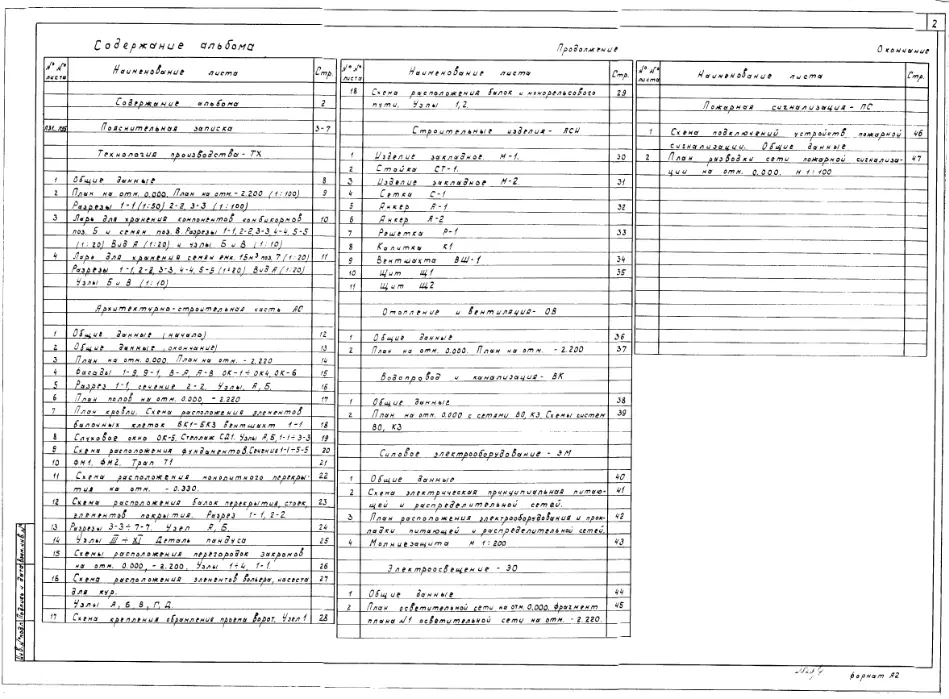 2
Содержание альбома
№№ листа Наименование листа Стр.
Содержание альбома 2
ПЗ1, ПЗ5 Пояснительная записка 3-7
Технология производства - ТХ
1 Общие данные 8
2 План на отм. 0.000. План на отм. - 2.200 (1:100) 9
Разрезы 1-1 (1:50) 2-2, 3-3 (1:100)
3 Ларь для хранения компонентов комбикормов 10
поз. Б и семян поз. 8. Разрезы 1-1, 2-2, 3-3, 4-4, 5-5
(1:20) Вид А (1:20) и узлы Б и В (1:10)
4 Ларь для хранения семян емк. 15м³ поз. 7 (1:20) 11
Разрезы 1-1, 2-2, 3-3, 4-4, 5-5 (1:20). Вид А (1:20)
Узлы Б и В (1:10)
Архитектурно-строительная часть АС
1 Общие данные (начало) 12
2 Общие данные (окончание) 13
3 План на отм. 0.000. План на отм. - 2.220 14
4 Фасады 1-9, 9-1, В-А, А-В ОК-1÷ОК4, ОК-6 15
5 Разрез 1-1, сечение 2-2. Узлы. А, Б. 16
6 План полов на отм. 0.000, - 2.220 17
7 План кровли. Схема расположения элементов
балочных клеток БК1-БК3 вентшахт 1-1 18
8 Слуховое окно ОК-5. Стеллаж СД1. Узлы А, Б, 1-1÷3-3 19
9 Схема расположения фундаментов. Сечения 1-1÷5-5 20
10 ФМ1. ФМ2. Трап Т1 21
11 Схема расположения монолитного перекры- 22
тия на отм. - 0.330.
12 Схема расположения балок перекрытия, стоек, 23
элементов покрытия. Разрез 1-1, 2-2
13 Разрезы 3-3÷7-7. Узел А, Б. 24
14 Узлы III ÷ XI Деталь пандуса 25
15 Схемы расположения перегородок закромов
на отм. 0.000, - 2.200. Узлы 1÷4, 1-1. 26
16 Схема расположения элементов вольера, насеста 27
для кур.
Узлы А, Б, В, Г, Д.
17 Схема крепления обрамления проема ворот. Узел 1 28
Продолжение
№№ листа Наименование листа Стр.
18 Схема расположения балок и монорельсового 29
пути. Узлы 1, 2.
Строительные изделия - АСИ
1 Изделие закладное М-1. 30
2 Стойка СТ-1.
3 Изделие закладное М-2 31
4 Сетка С-1
5 Анкер А-1 32
6 Анкер А-2
7 Решетка Р-1 33
8 Калитка К1
9 Вентшахта ВШ-1 34
10 Щит Щ1 35
11 Щит Щ2
Отопление и вентиляция - ОВ
1 Общие данные 36
2 План на отм. 0.000. План на отм. - 2.200 37
Водопровод и канализация - ВК
1 Общие данные 38
2 План на отм. 0.000 с сетями В0, К3. Схемы систем 39
В0, К3
Силовое электрооборудование - ЭМ
1 Общие данные 40
2 Схема электрическая принципиальная питаю- 41
щей и распределительной сетей.
3 План расположения электрооборудования и прок- 42
ладки питающей и распределительной сетей.
4 Молниезащита М 1:200 43
Электроосвещение - ЭО
1 Общие данные 44
2 План осветительной сети на отм. 0.000. Фрагмент 45
плана №1 осветительной сети на отм. - 2.220.
Окончание
№№ листа Наименование листа Стр.
Пожарная сигнализация - ПС
1 Схема подключений устройств пожарной 46
сигнализации. Общие данные
2 План разводки сети пожарной сигнализа- 47
ции на отм. 0.000. М 1:100
Инв. № подл. Подпись и дата Взам. инв. №
формат А2